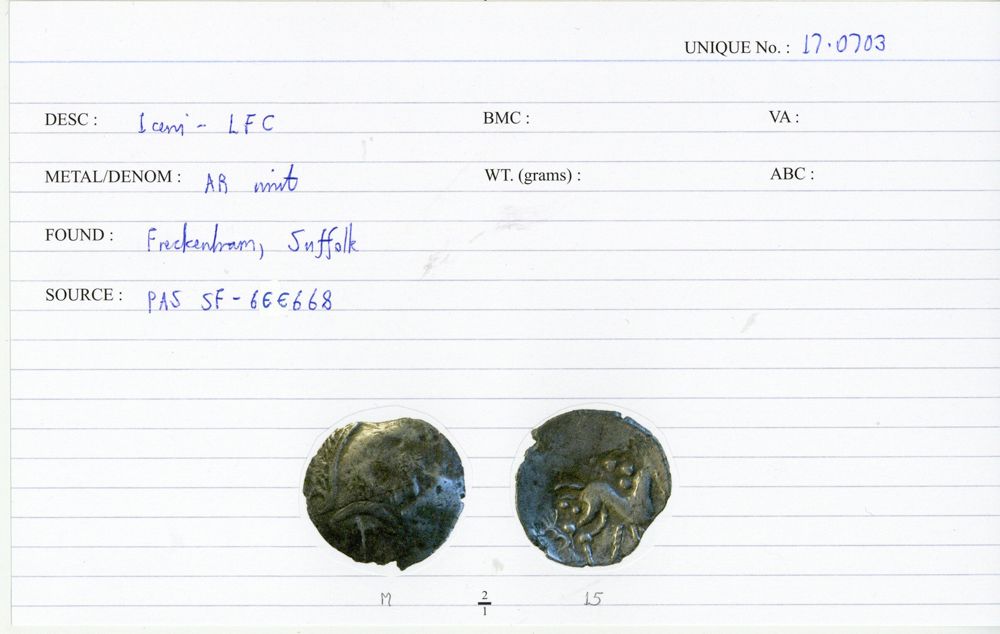 UNIQUE No. : 17.0703
DESC : Iceni - LFC BMC : VA :
METAL/DENOM : AR unit WT. (grams) : ABC :
FOUND : Freckenham, Suffolk
SOURCE : PAS SF-6EE668
M 2/1 15